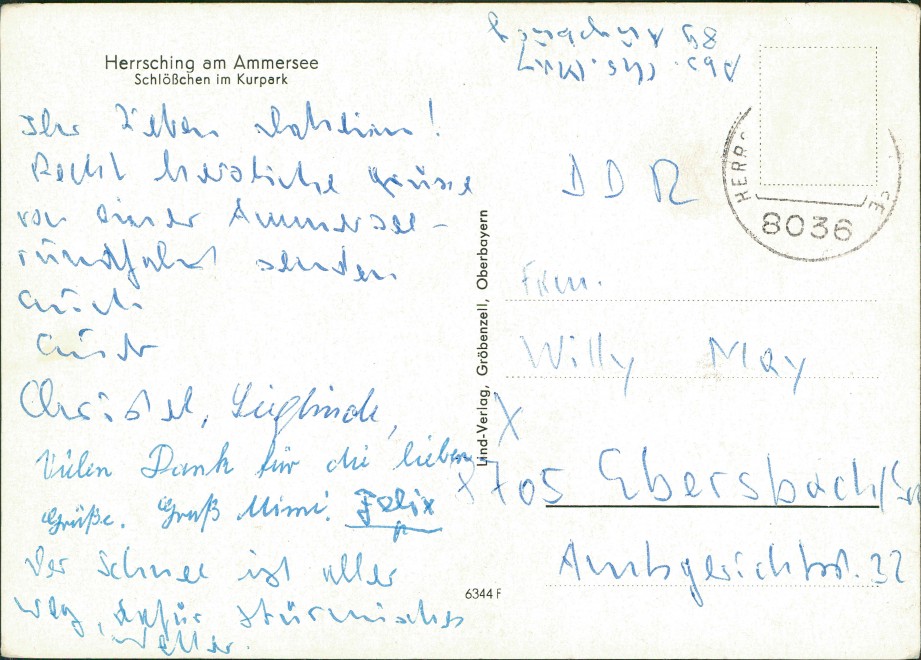 Herrsching am Ammersee
Schlößchen im Kurpark
Ihr Lieben daheim!
Recht herzliche Grüsse
von einer Ammersee-
rundfahrt senden
Euch
Christel, Sieglinde,
Vielen Dank für die lieben
Grüße. Gruß Mimi. Felix
Der Schnee ist aller
weg, dafür stürmisches
Wetter.
Lind-Verlag, Gröbenzell, Oberbayern
6344 F
Abs. Chs. May
89 Augsburg
HERRS
EE
8036
DDR
Fam.
Willy May
X
8705 Ebersbach/
Amtsgerichtsst. 22